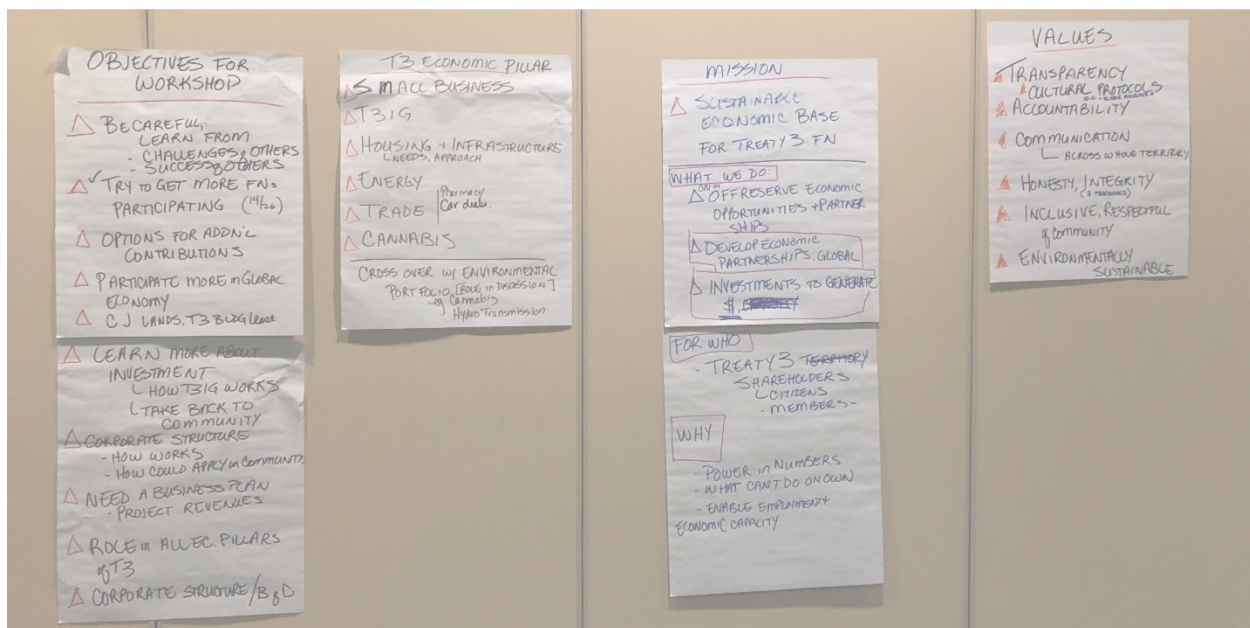 OBJECTIVES FOR
WORKSHOP
BE CAREFUL,
LEARN FROM
- CHALLENGES of OTHERS
- SUCCESS of OTHERS
✓ TRY TO GET MORE FNs
PARTICIPATING (14/26)
OPTIONS FOR ADDN'L
CONTRIBUTIONS
PARTICIPATE MORE in GLOBAL
ECONOMY
CJ LANDS, T3 BLDG lease
LEARN MORE ABOUT
INVESTMENT
HOW T3IG WORKS
TAKE BACK TO
COMMUNITY
CORPORATE STRUCTURE
- HOW WORKS
- HOW COULD APPLY in COMMUNITY
NEED A BUSINESS PLAN
- PROJECT REVENUES
ROLE in ALL EC. PILLARS
of T3
CORPORATE STRUCTURE/B of D
T3 ECONOMIC PILLAR
SMALL BUSINESS
T3IG
HOUSING + INFRASTRUCTURE
NEEDS, APPROACH
ENERGY
TRADE
Pharmacy
Car deals.
CANNABIS
CROSS OVER w/ ENVIRONMENTAL
PORTFOLIO [ROLE in DISCUSSION]
eg Cannabis
Hydro Transmission
MISSION
SUSTAINABLE
ECONOMIC BASE
FOR TREATY 3 FN
WHAT WE DO
OFF RESERVE ECONOMIC
OPPORTUNITIES + PARTNER
SHIPS
DEVELOP ECONOMIC
PARTNERSHIPS. GLOBAL
INVESTMENTS TO GENERATE
$,
FOR WHO
- TREATY 3 TERRITORY
SHAREHOLDERS
CITIZENS
- MEMBERS -
WHY
- POWER in NUMBERS
- WHAT CAN'T DO ON OWN
- ENABLE EMPLOYMENT
ECONOMIC CAPACITY
VALUES
TRANSPARENCY
CULTURAL PROTOCOLS
ACCOUNTABILITY
COMMUNICATION
ACROSS WHOLE TERRITORY
HONESTY, INTEGRITY
INCLUSIVE, RESPECTFUL
of COMMUNITY
ENVIRONMENTALLY
SUSTAINABLE